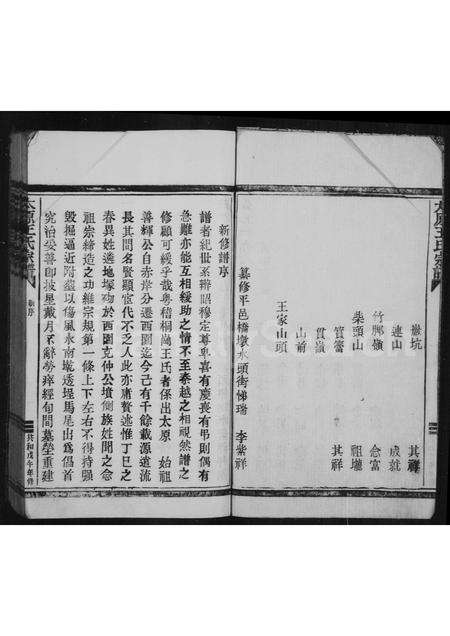 太原王氏宗譜
嶽坑 其祥
連山 成就
竹腳嶺 念富
柴頭山 祖壠
管簹 其祥
貫嶺
山前
王家山頭
纂修平邑橋墩水頭街悌瑞 李紫祥
新修譜序
譜者紀世系辯昭穆定尊卑喜有慶喪有弔則偶有
急難亦能互相緩助之情不至秦越之相視然譜之
修顧可緩乎哉粵稽桐尚王氏者係出太原 始祖
善輝公自赤岸分遷西園迄今己有千餘載源遠流
長其間名賢顯宦代不乏人此亦庸贅述惟丁巳之
春異姓逼地塚功於西園克仲公墳側族姓聞之念
祖宗締造之功維宗規第一條上下左右不得持强
毀掘逼近附塟以傷風水南壠透埕馬尾出為倡首
究治妥善卽披星戴月不辭勞瘁經旬間墓塋重建
太原王氏宗譜
新序
共和戊午年修